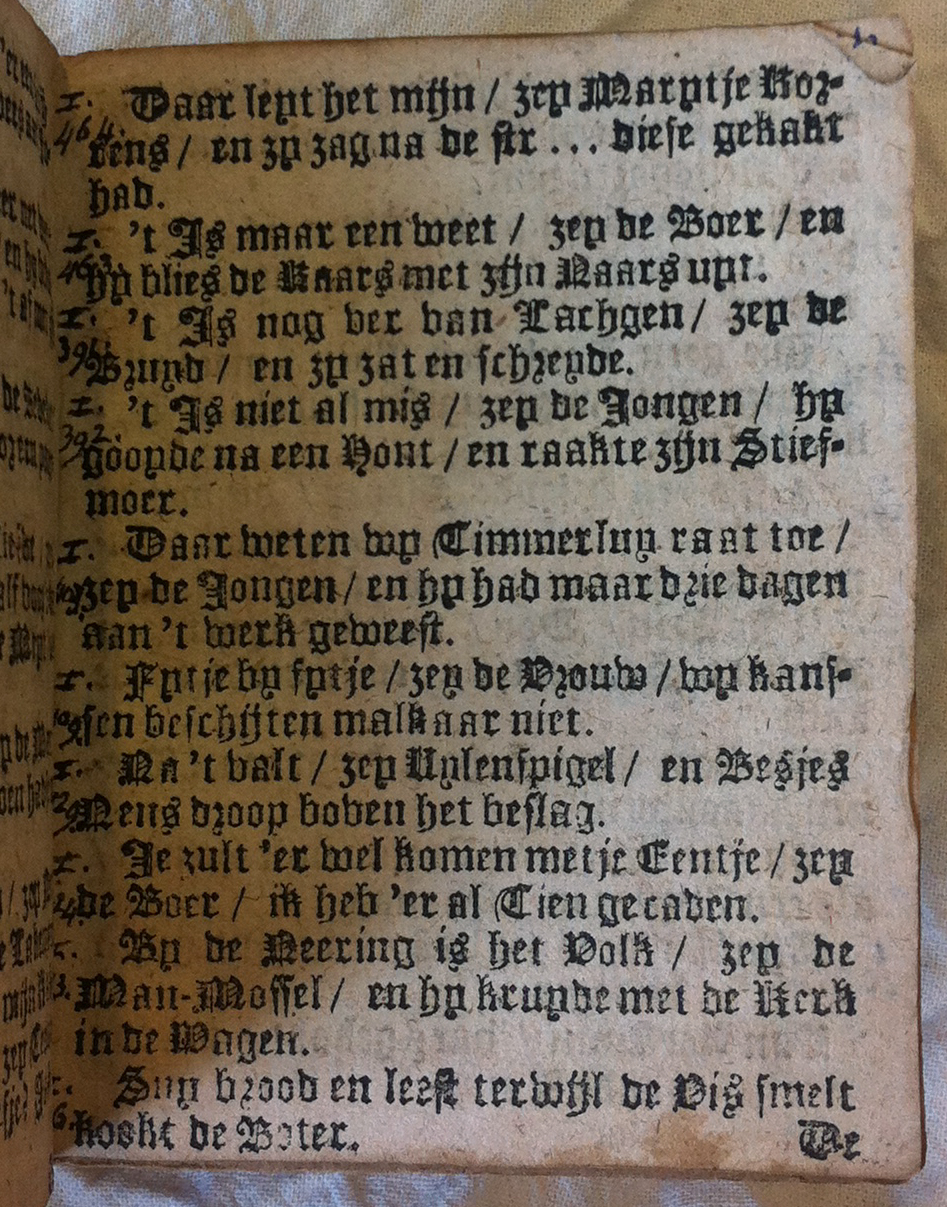 Daar leyt het mijn / zey Marytje Kor-
rens / en zy zag na de str ... diese gekakt
had.
't Is maar een weet / zey de Boer / en
hy blies de Kaars met zijn Naars uyt.
't Is nog ver van Lachgen / zey de
Bruyd / en zy zat en schreyde.
't Is niet al mis / zey de Jongen / hy
gooyde na een Hont / en raakte zijn Stief-
moer.
Daar weten wy Timmerluy raat toe /
zey de Jongen / en hy had maar drie dagen
aan 't werk geweest.
Fytje by fytje / zey de Vrouw / wy kans-
sen beschijten malkaar niet.
Na 't valt / zey Uylenspigel / en Besjes
Neus droop boven het beslag.
Je zult 'er wel komen met je Eentje / zey
de Boer / ik heb 'er al Tien gecaden.
By de Neering is het Volk / zey de
Man-Mossel / en hy kruyde met de Kerk
in de Wagen.
Suy brood en leest terwijl de Vis smelt
kookt de Boter.
De